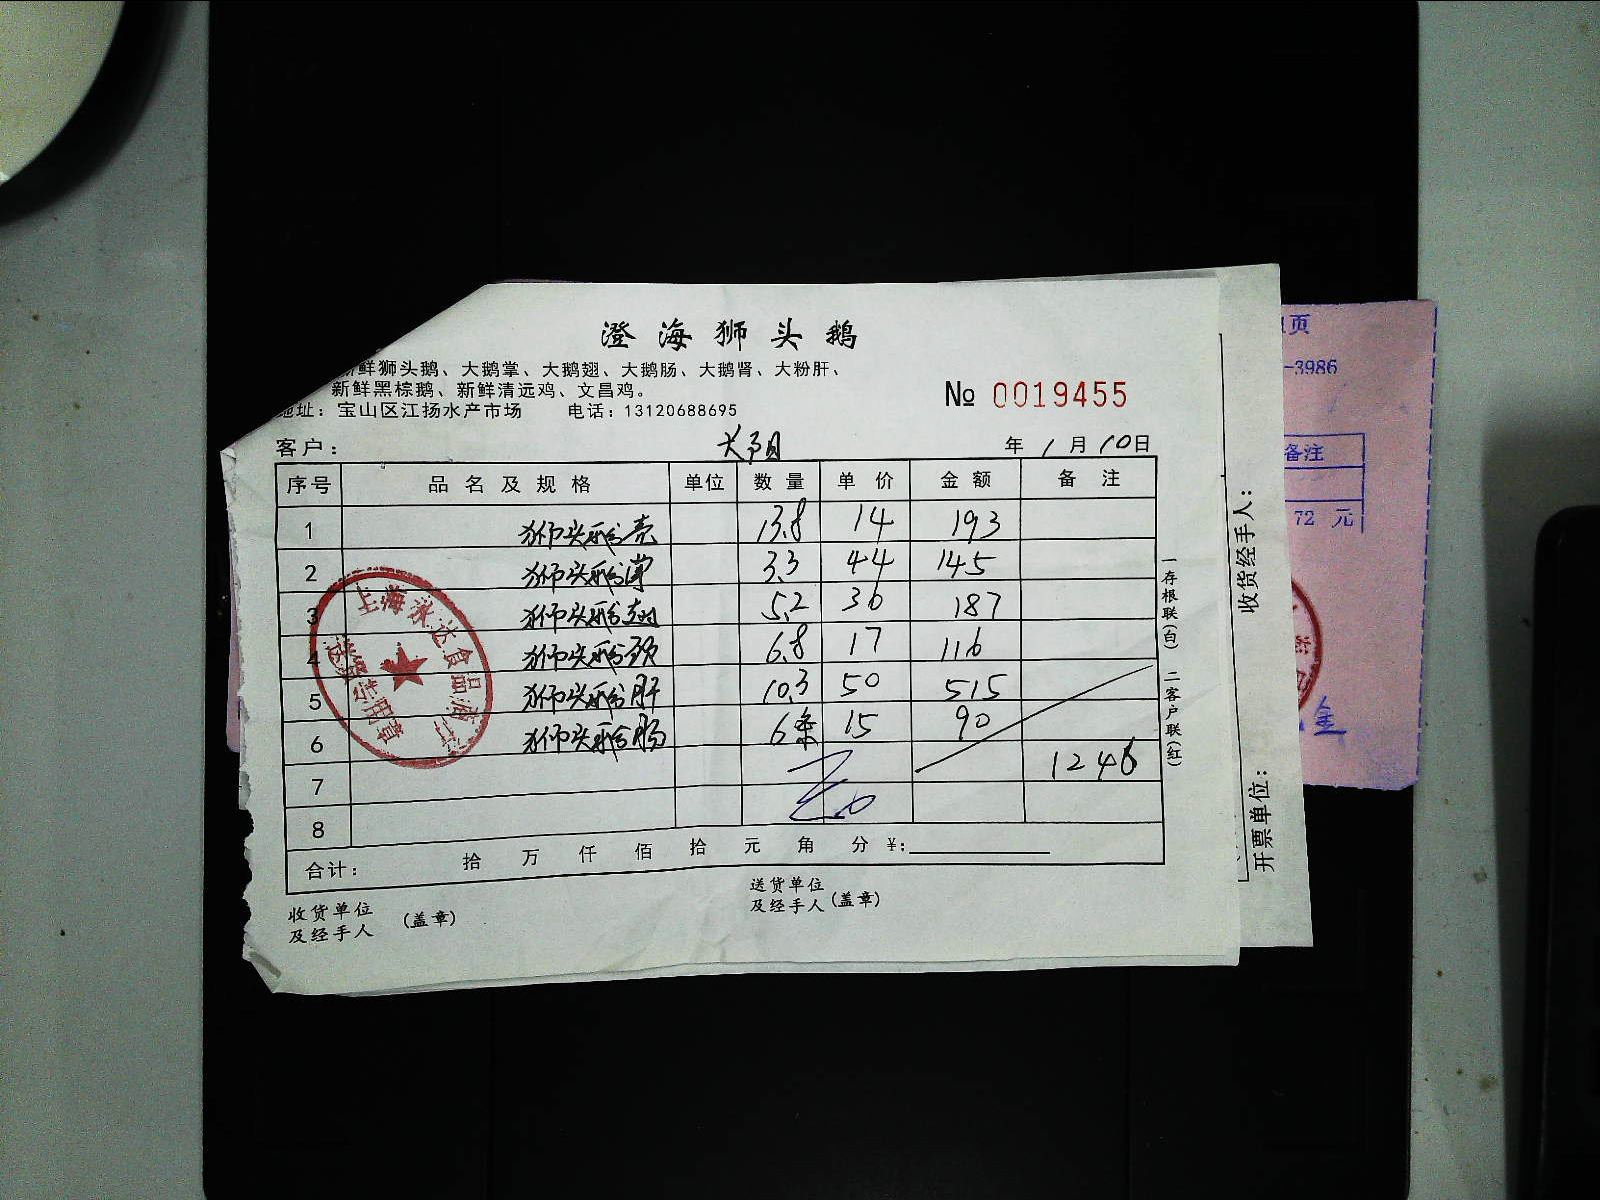 澄海狮头鹅
新鲜狮头鹅、大鹅掌、大鹅翅、大鹅肠、大鹅肾、大粉肝、
新鲜黑棕鹅、新鲜清远鸡、文昌鸡。
地址：宝山区江扬水产市场 电话：13120688695
№ 0019455
客户： 年 1 月 10 日
序号 品名及规格 单位 数量 单价 金额 备注
1 狮头鹅壳 13.8 14 193
2 狮头鹅掌 3.3 44 145
3 狮头鹅翅 5.2 36 187
4 狮头鹅颈 6.8 17 116
5 狮头鹅肝 10.3 50 515
6 狮头鹅肠 6条 15 90
7 1246
8
合计： 拾 万 仟 佰 拾 元 角 分 ¥:
收货单位
及经手人 （盖章）
送货单位
及经手人（盖章）
一存根联（白） 二客户联（红）
上海永达食品
收货经手人：
开票单位：
页
-3986
备注
72 元